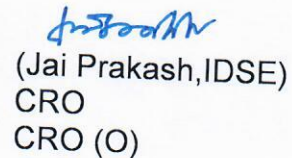 (Jai Prakash,IDSE)
CRO
CRO (O)